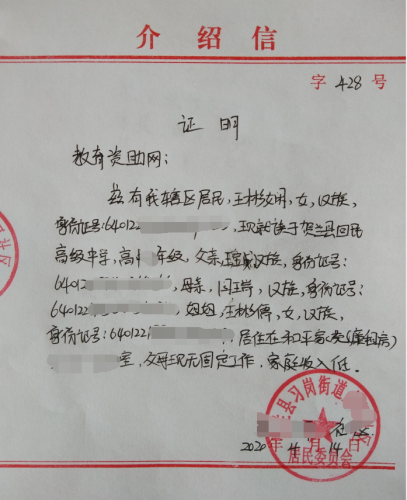 介绍信
字 428 号
证明
教育资助网：
兹有我辖区居民，王彬娟，女，汉族，
身份证号：640122 ，现就读于贺兰县回民
高级中学，高中 年级，父亲，汉族，身份证号：
640122 ，母亲，闫瑞，汉族，身份证号：
640122 ，姐姐，王彬倩，女，汉族，
身份证号：640122 ，居住在和平家园（廉租房）
室，父母现无固定工作，家庭收入低。
县习岗街道
2020年4月14日
居民委员会
社区